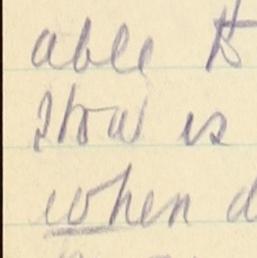 able to
is
when d